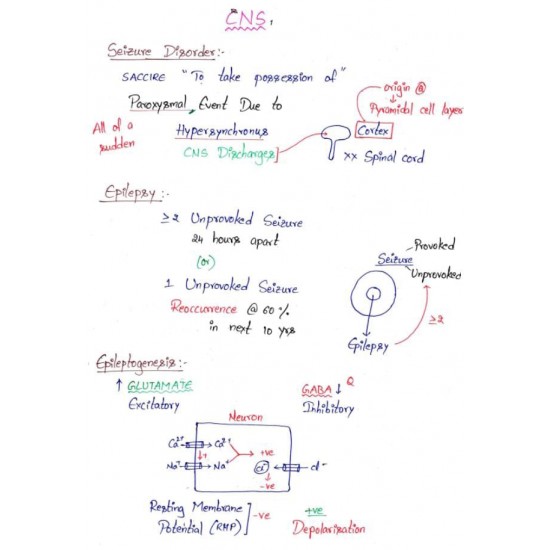 CNS,
Seizure Disorder:-
SACCIRE "To take possession of"
Paroxysmal, Event Due to
All of a
sudden
Hypersynchronus
CNS Discharges
origin @
Pyramidal cell layer
Cortex
xx Spinal cord
Epilepsy:-
≥2 Unprovoked Seizure
24 hours apart
(or)
1 Unprovoked Seizure
Reoccurrence @ 60%
in next 10 yrs
Provoked
Seizure
Unprovoked
≥2
Epilepsy
Epileptogenesis:-
↑ GLUTAMATE
Excitatory
GABA ↓
Inhibitory
Neuron
Ca²⁺ Ca²⁺
+ve
Na⁺ Na⁺
Cl⁻ cl⁻
-ve
Resting Membrane
Potential (RMP)
-ve
+ve
Depolarization